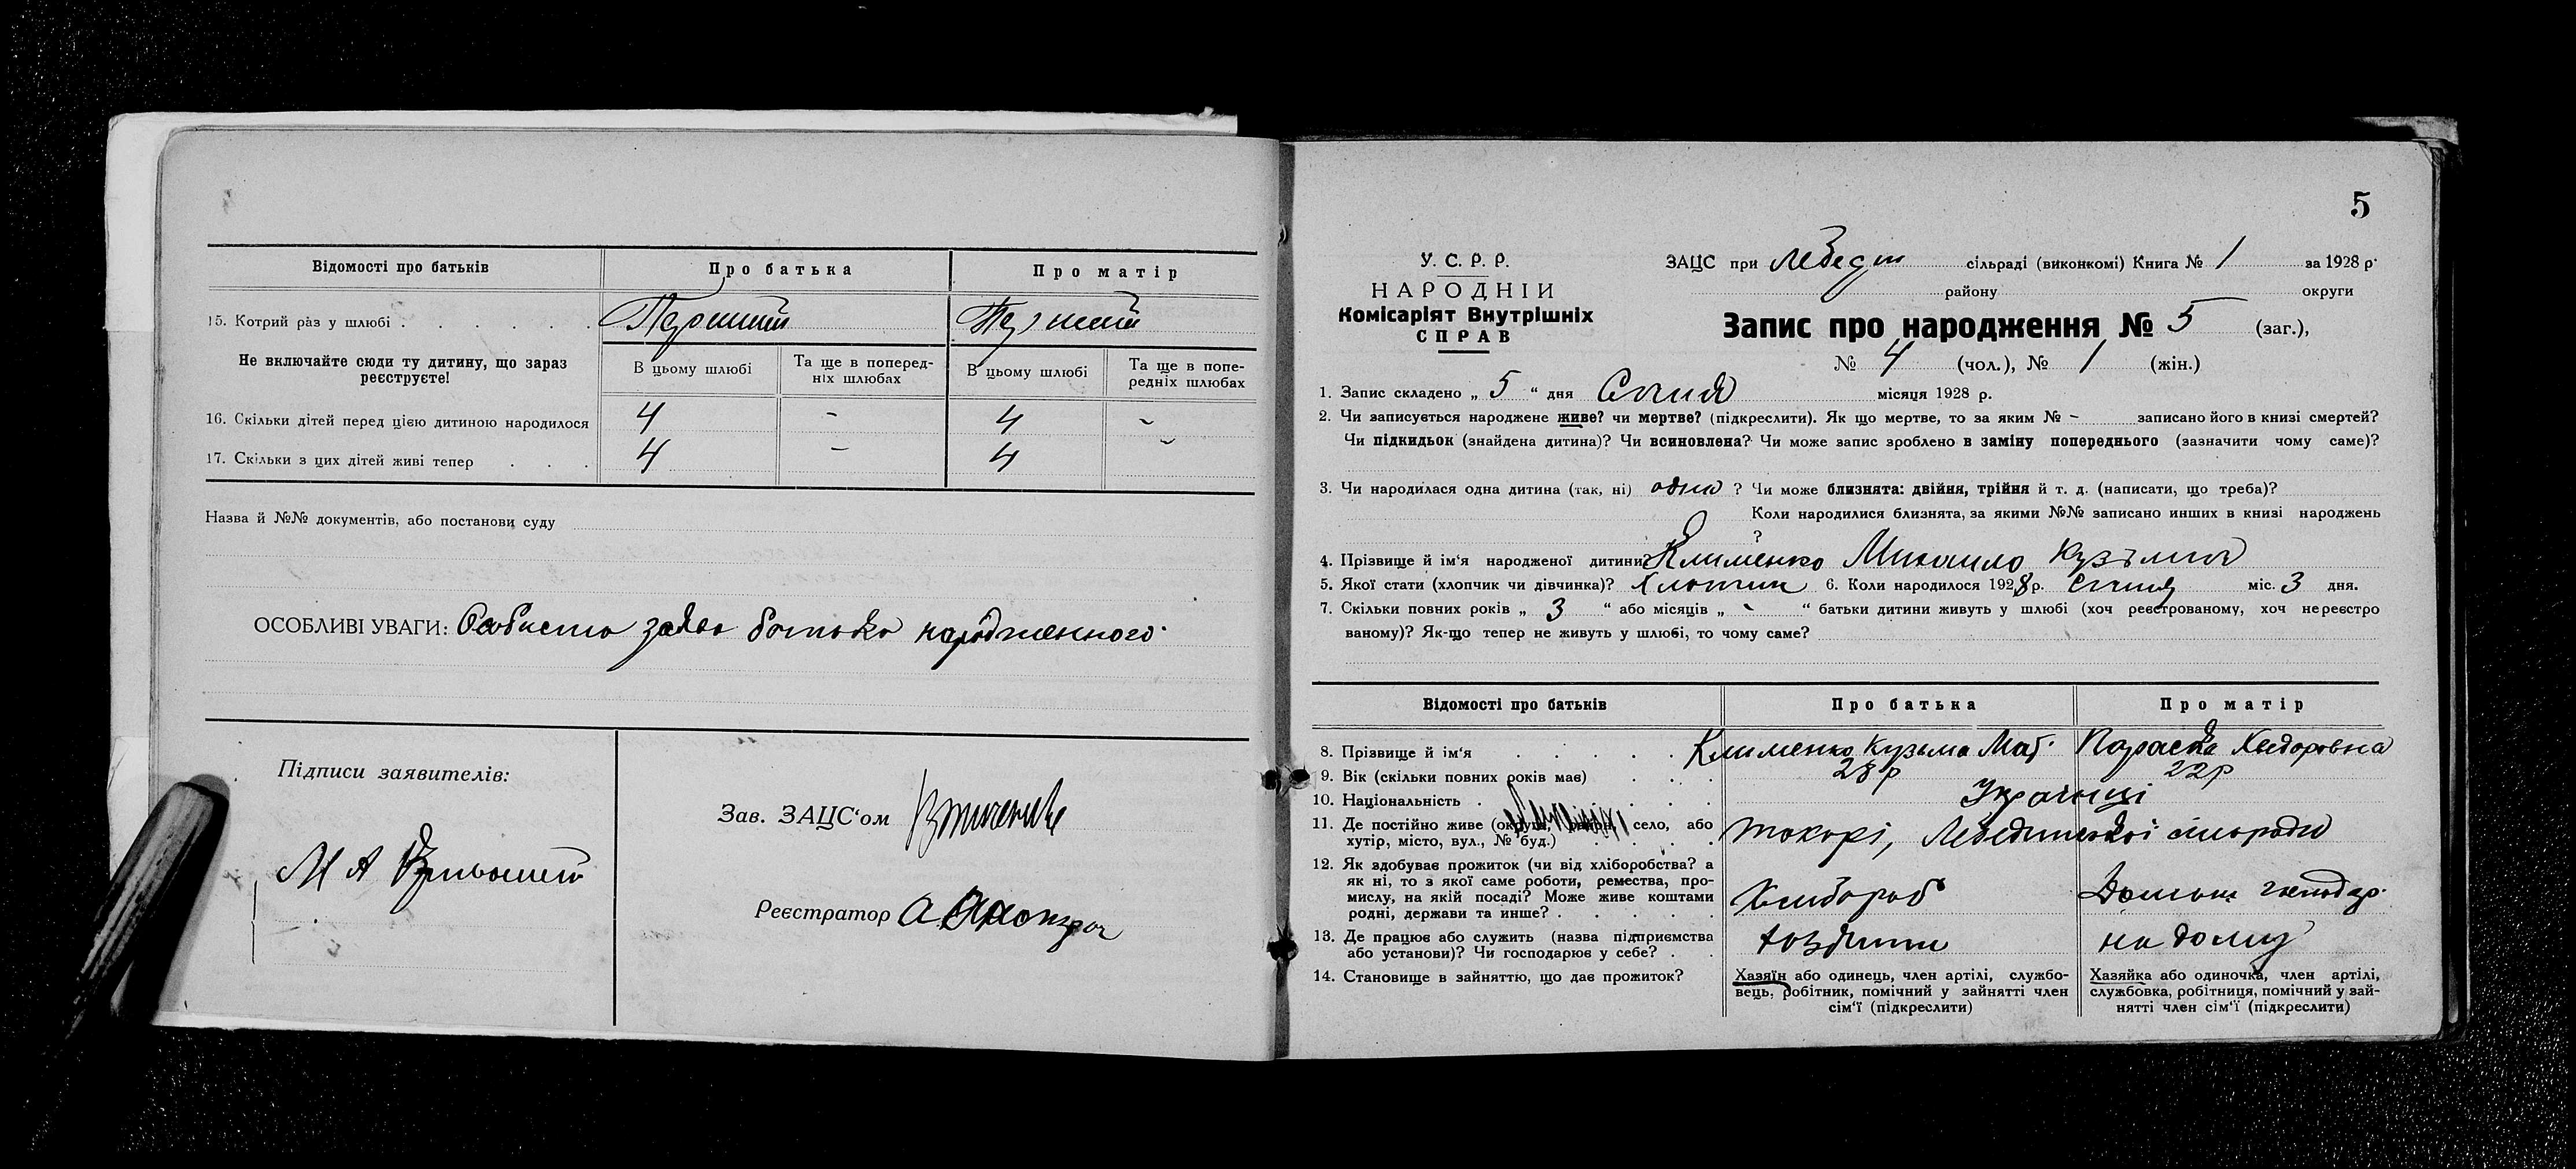 Відомості про батьків Про батька Про матір
15. Котрий раз у шлюбі . . . . . . Перший Перший
Не включайте сюди ту дитину, що зараз реєструєте!
В цьому шлюбі Та ще в попередніх шлюбах В цьому шлюбі Та ще в попередніх шлюбах
16. Скільки дітей перед цією дитиною народилося 4 - 4 -
17. Скільки з цих дітей живі тепер . . . 4 - 4 -
Назва й №№ документів, або постанови суду
ОСОБЛИВІ УВАГИ: Особиста заява батька народженного
Підписи заявителів:
М А
Зав. ЗАЦС'ом
Реєстратор А.
5
У. С. Р. Р.
НАРОДНІЙ
Комісаріят Внутрішніх
СПРАВ
ЗАЦС при Лебедин сільраді (виконкомі) Книга № 1 за 1928 р.
району округи
Запис про народження № 5 (заг.),
№ 4 (чол.), № 1 (жін.)
1. Запис складено „ 5 “ дня Січня місяця 1928 р.
2. Чи записується народжене живе? чи мертве? (підкреслити). Як що мертве, то за яким № - записано його в книзі смертей?
Чи підкидьок (знайдена дитина)? Чи всиновлена? Чи може запис зроблено в заміну попереднього (зазначити чому саме)?
3. Чи народилася одна дитина (так, ні) одна ? Чи може близнята: двійня, трійня й т. д. (написати, що треба)?
Коли народилися близнята, за якими №№ записано инших в книзі народжень
?
4. Прізвище й ім'я народженої дитини? Клименко Михаило Кузьмич
5. Якої стати (хлопчик чи дівчинка)? Хлопчик 6. Коли народилося 1928 р. Січня міс. 3 дня.
7. Скільки повних років „ 3 “ або місяців „ - “ батьки дитини живуть у шлюбі (хоч реєстрованому, хоч нереєстро
ваному)? Як-що тепер не живуть у шлюбі, то чому саме?
Відомості про батьків Про батька Про матір
8. Прізвище й ім'я . . . . . Клименко Кузьма Мат. Параска Хведоровна
9. Вік (скільки повних років має) . . . 28 р 22 р
10. Національність . . . . Українці
11. Де постійно живе (округа, район, село, або
хутір, місто, вул., № буд.) . . . . Токарі, Лебединської сільради
12. Як здобуває прожиток (чи від хліборобства? а
як ні, то з якої саме роботи, ремества, про-
мислу, на якій посаді? Може живе коштами
родні, держави та инше? . . . . . Хлибороб Домаш господар.
13. Де працює або служить (назва підприємства
або установи)? Чи господарює у себе? . . на дому
14. Становище в зайняттю, що дає прожиток?
Хазяїн або одинець, член артілі, службо-
вець, робітник, помічний у зайнятті член
сім'ї (підкреслити)
Хазяйка або одиночка, член артілі,
службовка, робітниця, помічний у зай-
нятті член сім'ї (підкреслити)